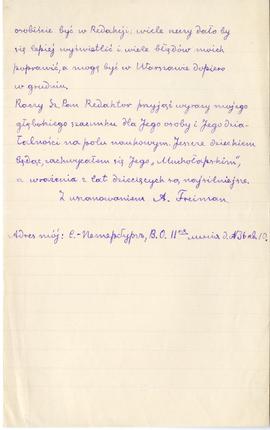 osobiście być w Redakcji; wiele rzeczy dało by
się lepiej wyświetlić i wiele błędów moich
poprawić, a mogę być w Warszawie dopiero
w grudniu.
Raczy Sz. Pan Redaktor przyjąć wyrazy mojego
głębokiego szacunku dla Jego osoby i Jego dzia-
łalności na polu naukowem. Jeszcze dzieckiem
będąc, zachwycałem się Jego „Muchołapskim",
a wrażenia z lat dziecięcych są najsilniejsze.
Z uszanowaniem A. Freiman.
Adres mój: С.-Петербургъ, В.О. 11ая линія д. №56 кв. 10.